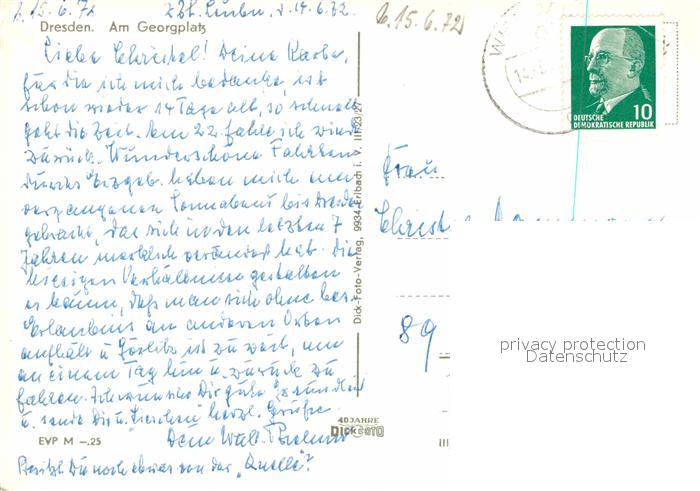 b. 15.6.72
d. 14.6.72
b. 15.6.72
Dresden. Am Georgplatz
Liebe Christel! Deine Karte,
für die ich mich bedanke, ist
schon wieder 14 Tage alt, so schnell
geht die Zeit. Am 22. fahre ich wieder
zurück. Wunderschöne Fahrten
durchs Erzgeb. haben mich am
vergangenen Sonnabend bis Dresden
gebracht, das sich in den letzten 7
Jahren merklich verändert hat. Die
hiesigen Verhältnisse gestatten
es kaum, daß man sich ohne bes.
Erlaubnis an anderen Orten
aufhält u. Görlitz ist zu weit, um
an einem Tag hin u. zurück zu
fahren. Ich wünsche Dir gute Gesundheit
u. sende Dir u. Lieschen herzl. Grüße
Dein
Besitzt Du noch etwas von der „Quelle"?
EVP M –.25
40 JAHRE
Dick FOTO
Dick-Foto-Verlag, 9934 Erlbach i. V. III 23 27
10
DEUTSCHE
DEMOKRATISCHE REPUBLIK
Frau
89
privacy protection
Datenschutz